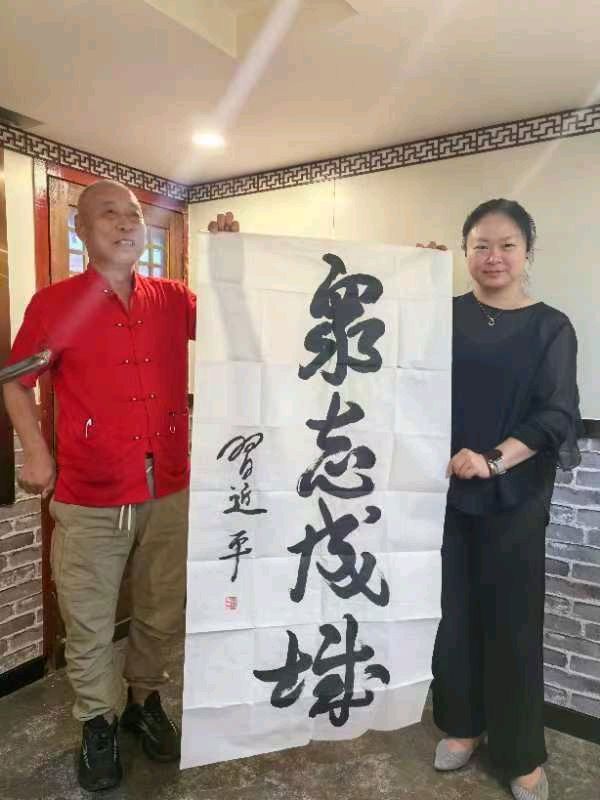 众志成城
習近平